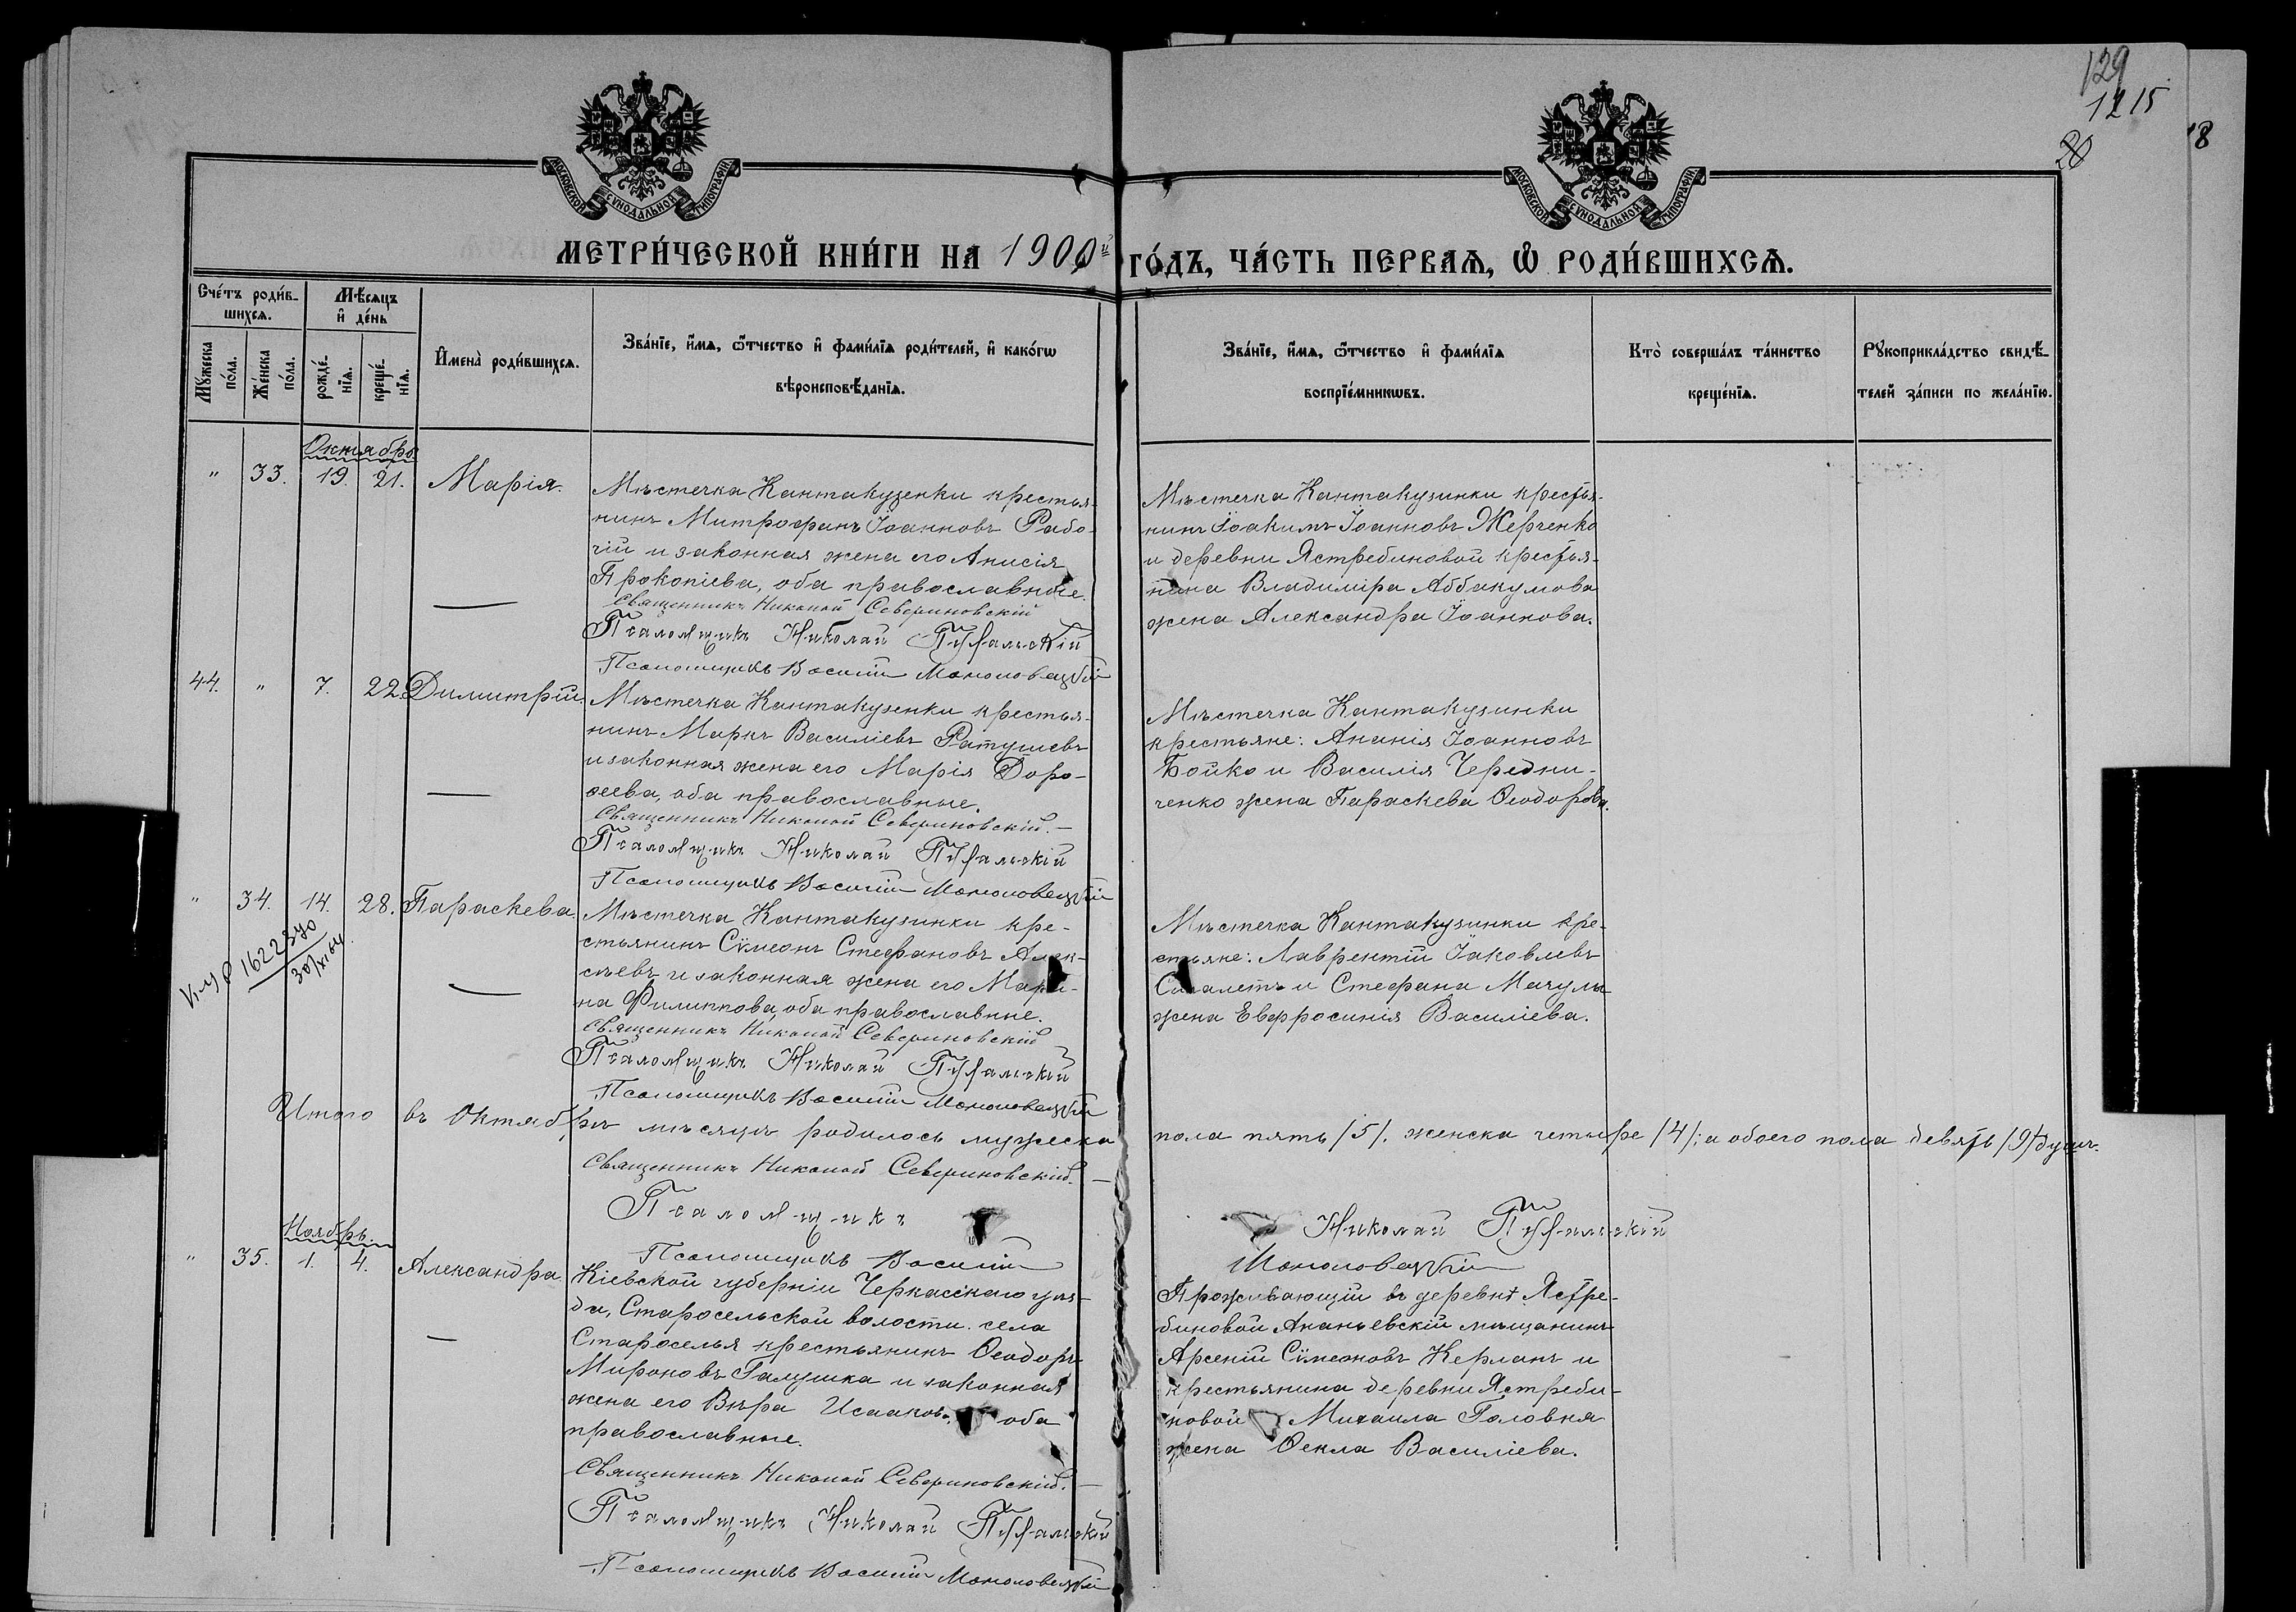 129
1215
28
18
МОСКОВСКОЙ СУНОДАЛЬНОЙ ТИПОГРАФІИ
МОСКОВСКОЙ СУНОДАЛЬНОЙ ТИПОГРАФІИ
МЕТРИ́ЧЕСКОЙ КНИ́ГИ НА 1900й ГО́ДЪ, ЧА́СТЬ ПЕРВАѦ, Ѡ РОДИ́ВШИХСѦ.
Сче́тъ роди́в-
шихсѧ.
Мѣ́сѧцъ
и҆ де́нь
Мꙋ́жеска
по́ла.
Же́нска
по́ла.
рожде́-
нїѧ.
креще́-
нїѧ.
И҆мена̀ роди́вшихсѧ.
Зва́нїе, и҆́мѧ, ѻ҆́тчество и҆ фами́лїѧ роди́телей, и҆ како́гѡ
вѣроисповѣ́данїѧ.
Зва́нїе, и҆́мѧ, ѻ҆́тчество и҆ фами́лїѧ
воспрїе́мникѡвъ.
Кто̀ соверша́лъ та́инство
креще́нїѧ.
Рꙋкоприкла́дство свидѣ́-
телей за́писи по жела́нїю.
Октябрь
" 33. 19. 21. Марія.
Мѣстечка Кантакузенки крестья-
нинъ Митрофанъ Іоанновъ Рабо-
чій и законная жена его Анисія
Прокопіева, оба православные.
Священникъ Николай Севериновскій
Псаломщикъ Николай
Псаломщикъ Василій
Мѣстечка Кантакузинки крестья-
нинъ Іоакимъ Іоанновъ Жерченко
и деревни Ястребиновой крестья-
нина Владиміра Аббакумова
жена Александра Іоаннова.
44. " 7. 22. Димитрій.
Мѣстечка Кантакузенки крестья-
нинъ Маркъ Василіевъ Ратушевъ
и законная жена его Марія Доро-
ѳеева, оба православные.
Священникъ Николай Севериновскій.
Псаломщикъ Николай
Псаломщикъ Василій
Мѣстечка Кантакузинки
крестьяне: Ананія Іоанновъ
Бойко и Василія Чередни-
ченко жена Параскева Ѳеодорова.
" 34. 14. 28. Параскева
Мѣстечка Кантакузинки кре-
стьянинъ Сѵмеонъ Стефановъ Алек-
сѣевъ и законная жена его Мари-
на Филиппова, оба православные.
Священникъ Николай Севериновскій
Псаломщикъ Николай
Псаломщикъ Василій
Мѣстечка Кантакузинки кре-
стьяне: Лаврентій Іаковлевъ
и Стефана Мачулы
жена Евфросинія Василіева.
1622840
30/XI 64
Итого въ Октябрѣ мѣсяцѣ родилось мужеска пола пять /5/. женска четыре /4/; а обоего пола девять /9/ душъ.
Священникъ Николай Севериновскій.
Псаломщикъ Николай
Псаломщикъ Василій
Ноябрь.
" 35. 1. 4. Александра
Кіевской губерніи Черкасскаго уѣз-
да, Старосельской волости села
Староселья крестьянинъ Ѳеодоръ
Мироновъ Галушка и законная
жена его Вѣра Исаакова оба
православные.
Священникъ Николай Севериновскій.
Псаломщикъ Николай
Псаломщикъ Василій
Проживающій въ деревнѣ Ястре-
биновой Ананьевскій мѣщанинъ
Арсеній Сѵмеоновъ Керланъ и
крестьянина деревни Ястреби-
новой Михаила Головня
жена Ѳекла Василіева.